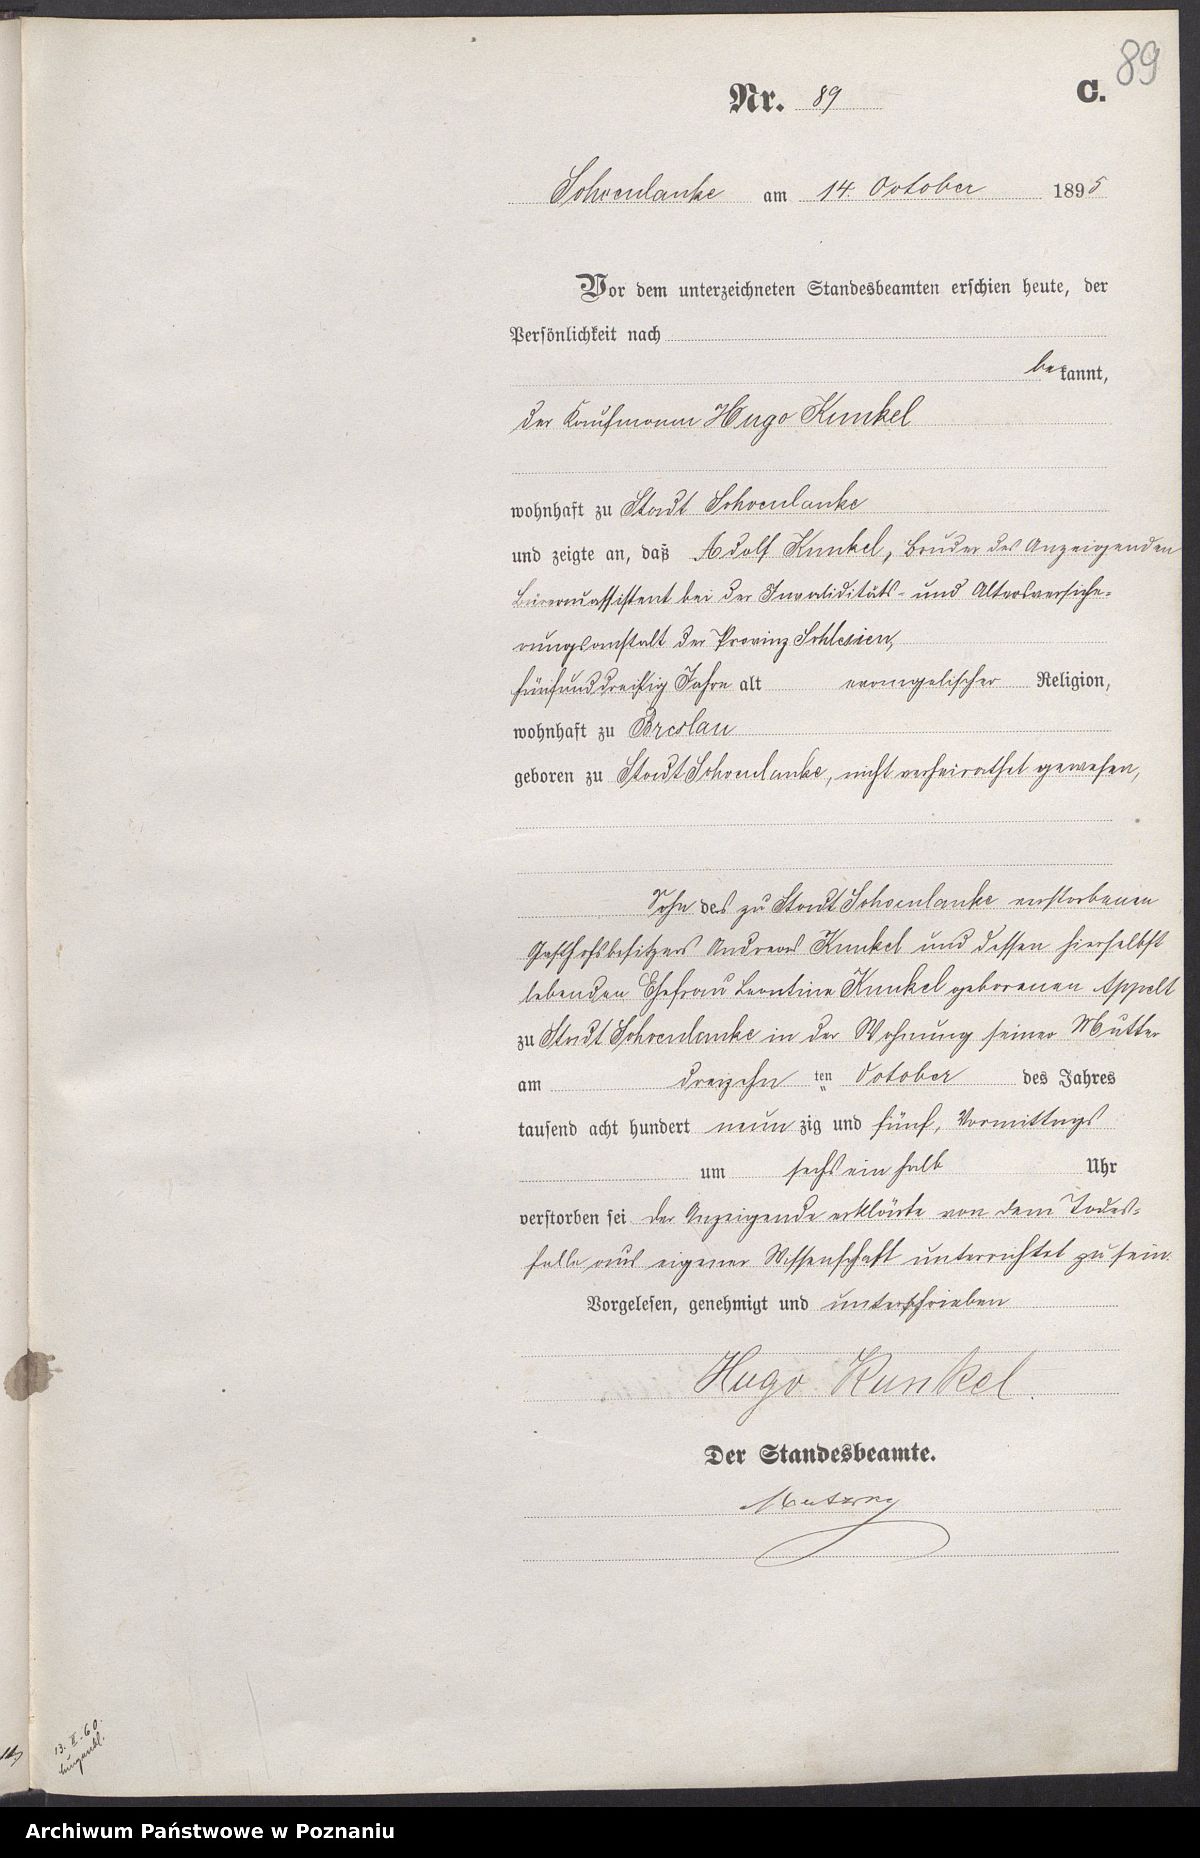 89
Nr. 89 C.
Schoenlanke am 14. October 1895
Vor dem unterzeichneten Standesbeamten erschien heute, der
Persönlichkeit nach
bekannt,
der Kaufmann Hugo Kunkel
wohnhaft zu Stadt Schoenlanke
und zeigte an, daß Adolf Kunkel, Bruder des Anzeigenden
Büreauassistent bei der Invaliditäts- und Altersversiche-
rungsanstalt der Provinz Schlesien,
fünfunddreißig Jahre alt evangelischer Religion,
wohnhaft zu Breslau
geboren zu Stadt Schoenlanke, nicht verheirathet gewesen,
Sohn des zu Stadt Schoenlanke verstorbenen
Gasthofsbesitzers Andreas Kunkel und dessen hierselbst
lebenden Ehefrau Leontine Kunkel geborenen Appelt
zu Stadt Schoenlanke in der Wohnung seiner Mutter
am dreizehn ten October des Jahres
tausend acht hundert neun zig und fünf, Vormittags
um sechs ein halb Uhr
verstorben sei der Anzeigende erklärte von dem Todes-
falle aus eigener Wissenschaft unterrichtet zu sein.
Vorgelesen, genehmigt und unterschrieben
Hugo Kunkel.
Der Standesbeamte.
13. II. 60.
Archiwum Państwowe w Poznaniu